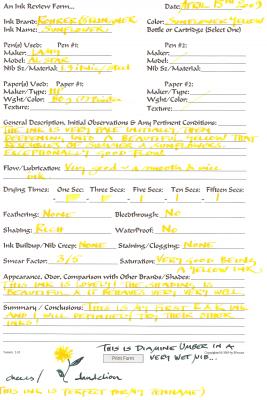 An Ink Review Form... Date: April 15th 2009
Ink Brand: Rohrer & Klingner Color: Sunflower Yellow
Ink Name: Sunflower Bottle or Cartridge (Select One)
Pen(s) Used: Pen #1: Pen #2:
Maker: Lamy Maker:
Model: Al Star Model:
Nib Sz/Material: Nib Sz/Material:
Paper(s) Used: Paper #1 Paper #2:
Maker/Type: Maker/Type:
Wght/Color: Wght/Color:
Texture: Texture:
General Description, Initial Observations & Any Pertinent Conditions:
The ink is very pale initially, then
deepening into a beautiful yellow that
resembles of summer & sunflowers.
Exceptionally good flow.
Flow/Lubrication: Very good - a smooth & nice
ink
Drying Times: One Sec: Three Secs: Five Secs: Ten Secs: Fifteen Secs:
Feathering: None Bleedthrough: No
Shading: Rich WaterProof: No
Ink Buildup/Nib Creep: None Staining/Clogging: None
Smear Factor: 3/5 Saturation: Very good being
a yellow ink
Appearance, Odor, Comparison with Other Brands/Shades:
This ink is lovely! The shading is
beautiful & it behaves very very well.
Summary / Conclusions: This is my first R&K ink
and I will definitely try their other
inks!
This is Diamine Umber in a
very wet nib...
Print Form
cheers/ dandelion
This ink is perfect for my